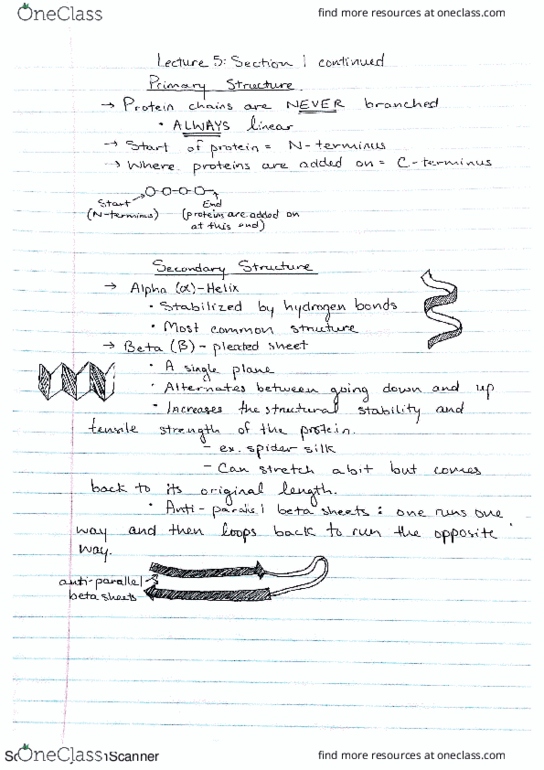 OneClass find more resources at oneclass.com
Lecture 5: Section 1 continued
Primary Structure
→ Protein chains are NEVER branched
• ALWAYS linear
→ Start of protein = N-terminus
→ Where proteins are added on = C-terminus
Start End
(N-terminus) (proteins are added on
at this end)
Secondary Structure
→ Alpha (α)-Helix
• Stabilized by hydrogen bonds
• Most common structure
→ Beta (β) - pleated sheet
• A single plane
• Alternates between going down and up
• Increases the structural stability and
tensile strength of the protein.
- ex. spider silk
- Can stretch a bit but comes
back to its original length.
• Anti-parallel beta sheets: one runs one
way and then loops back to run the opposite
way.
anti-parallel
beta sheets
OneClass Scanner find more resources at oneclass.com